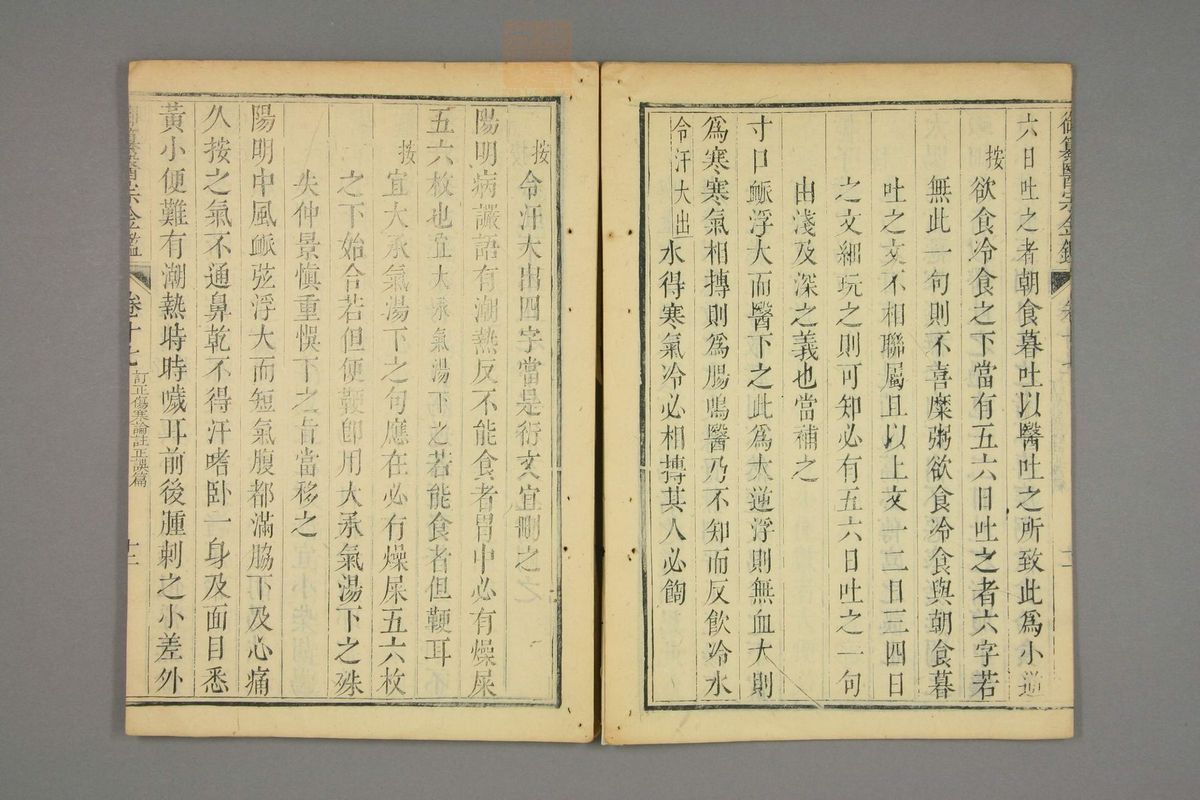 六日吐之者朝食暮吐以醫吐之所致此爲小逆
按欲食冷食之下當有五六日吐之者六字若
無此一句則不喜糜粥欲食冷食與朝食暮
吐之文不相聯屬且以上文一二日三四日
之文細玩之則可知必有五六日吐之一句
由淺及深之義也當補之
寸口脈浮大而醫下之此爲大逆浮則無血大則
爲寒寒氣相摶則爲腸鳴醫乃不知而反飲冷水
令汗大出水得寒氣冷必相摶其人必䭇
按令汗大出四字當是衍文宜刪之
陽明病讝語有潮熱反不能食者胃中必有燥屎
五六枚也宜大承氣湯下之若能食者但鞕耳
按宜大承氣湯下之句應在必有燥屎五六枚
之下始合若但便鞕卽用大承氣湯下之殊
失仲景慎重悞下之旨當移之
陽明中風脈弦浮大而短氣腹都滿脇下及心痛
久按之氣不通鼻乾不得汗嗜卧一身及面目悉
黃小便難有潮熱時時噦耳前後腫刺之小差外
御纂醫宗金鑑
卷十七
訂正傷寒論註正誤篇
十二